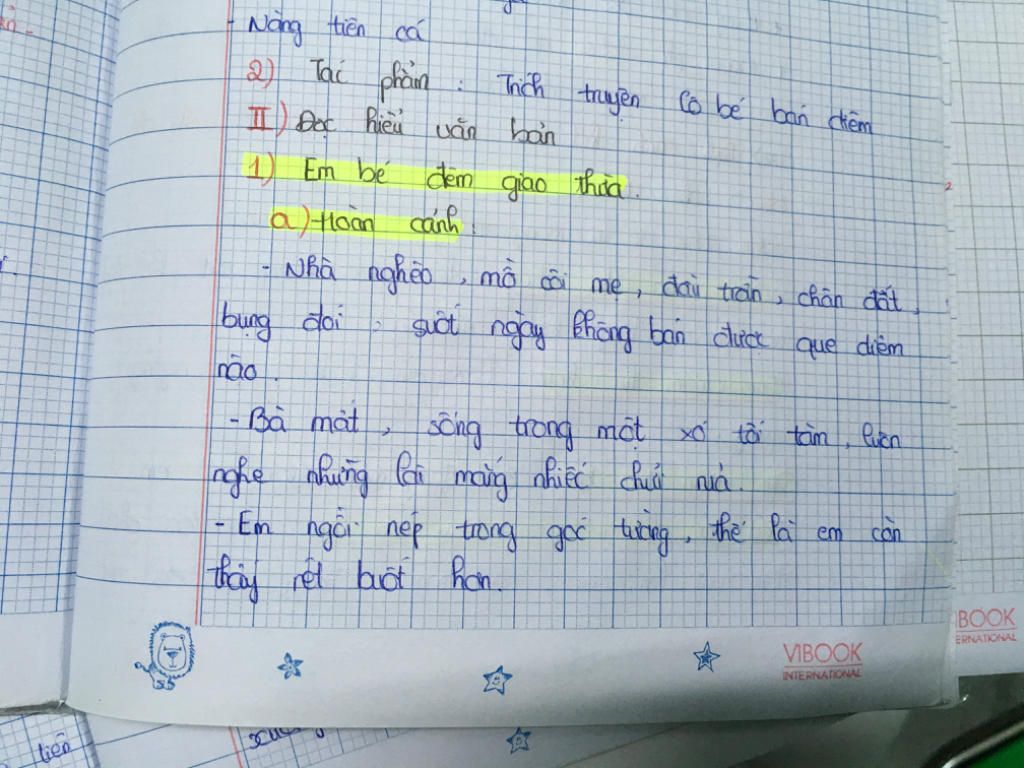 - Nàng tiên cá
2) Tác phẩm : Trích truyện Cô bé bán diêm
II) Đọc hiểu văn bản
1) Em bé đêm giao thừa.
a) Hoàn cảnh.
- Nhà nghèo, mồ côi mẹ, đầu trần, chân đất,
bụng đói, suốt ngày không bán được que diêm
nào.
- Bà mất, sống trong một xó tối tăm, luôn
nghe những lời mắng nhiếc chửi rủa.
- Em ngồi nép trong góc tường, thế là em còn
thấy rét buốt hơn.
VIBOOK
INTERNATIONAL
BOOK
ERNATIONAL
tiên